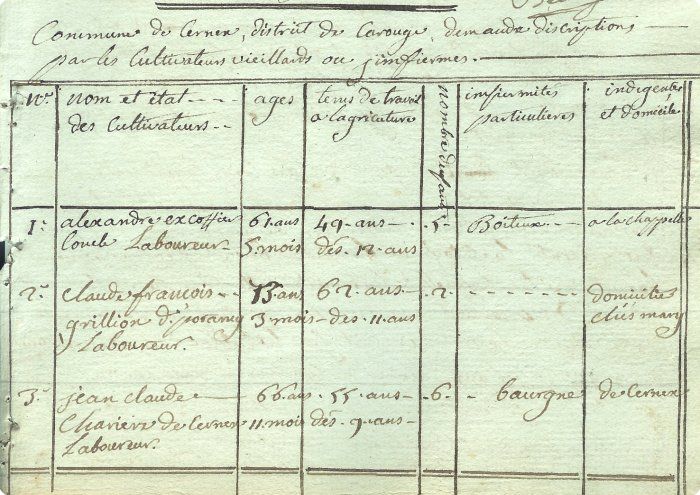 Commune de Cernex, district de Carouge, demande discriptions
par les Cultivateurs vieillards ou jinfiermes.
N.os nom et état ages tems de travail nombre infiermites indigents
des Cultivateurs a lagriculture particulieres et domicile
1.° alexandre excoffier 61 ans 49 ans 5 Boiteux a la chapelle
Laboureur 5 mois dés 12 ans
2.° Claude françois 73 ans 62 ans 2 domicilies
grillion 3 mois des 11 ans chés mary
Laboureur.
3.° jean claude 66 ans 55 ans 6 baurgne de Cernex
Chariere de Cernex 11 mois dés 9 ans
Laboureur.